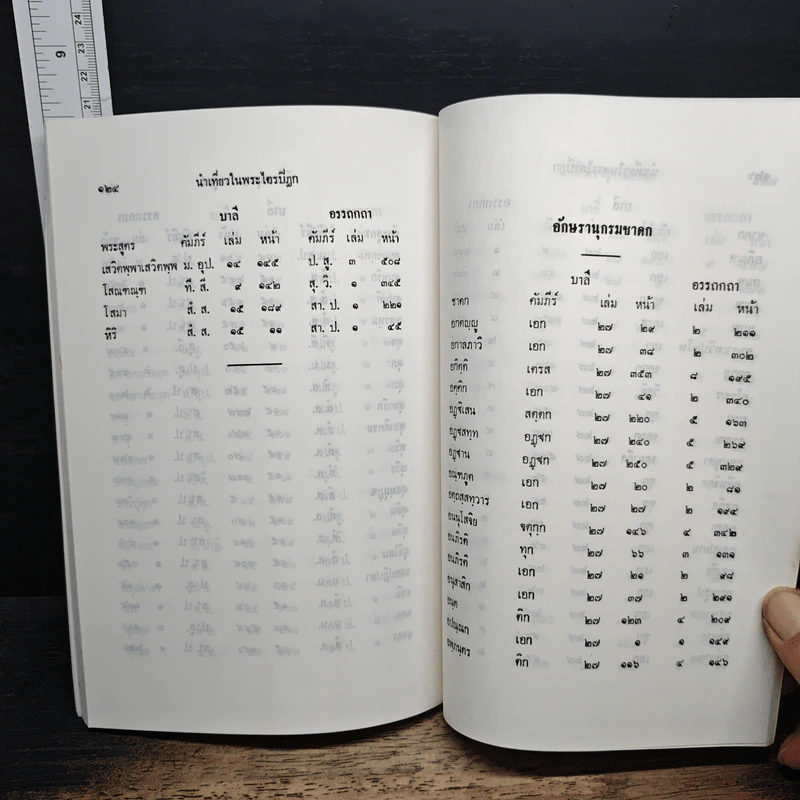 24
23
22
21
9
๑๒๔ นำเที่ยวในพระไตรปิฎก
บาลี อรรถกถา
พระสูตร คัมภีร์ เล่ม หน้า คัมภีร์ เล่ม หน้า
เสวิตพฺพาเสวิตพฺพ ม. อุป. ๑๔ ๑๔๕ ป. สู. ๓ ๕๐๘
โสณทณฺฑ ที. สี. ๙ ๑๔๒ สุ. วิ. ๑ ๓๔๕
โสมา สํ. ส. ๑๕ ๑๘๙ สา. ป. ๑ ๒๒๑
หิริ สํ. ส. ๑๕ ๑๑ สา. ป. ๑ ๔๕
อักษรานุกรมชาดก
บาลี อรรถกถา
ชาดก คัมภีร์ เล่ม หน้า เล่ม หน้า
อกตญฺญู เอก ๒๗ ๒๙ ๒ ๒๑๑
อกาลราวิ เอก ๒๗ ๓๘ ๒ ๓๐๒
อกิตฺติ เตรส ๒๗ ๓๕๓ ๘ ๑๙๕
อคฺคิก เอก ๒๗ ๔๑ ๒ ๓๔๐
อฏฺฐิเสน สตฺตก ๒๗ ๒๒๐ ๕ ๑๖๓
อฏฺฐสทฺท อฏฺฐก ๒๗ ๒๔๐ ๕ ๒๖๙
อฏฺฐาน อฏฺฐก ๒๗ ๒๕๐ ๕ ๓๒๙
อณฺฑภูต เอก ๒๗ ๒๐ ๒ ๘๑
อตฺถสฺสทฺวาร เอก ๒๗ ๒๗ ๒ ๑๙๔
อนนุโสจิย จตุกฺก ๒๗ ๑๔๖ ๔ ๓๔๒
อนภิรติ ทุก ๒๗ ๖๖ ๓ ๑๓๑
อนภิรติ เอก ๒๗ ๒๑ ๒ ๙๘
อนุสาสิก เอก ๒๗ ๓๗ ๒ ๒๙๑
ติก ๒๗ ๑๒๓ ๔ ๒๐๙
อปณฺณก เอก ๒๗ ๑ ๑ ๑๔๙
อพฺภนฺตร ติก ๒๗ ๑๑๖ ๔ ๑๔๖